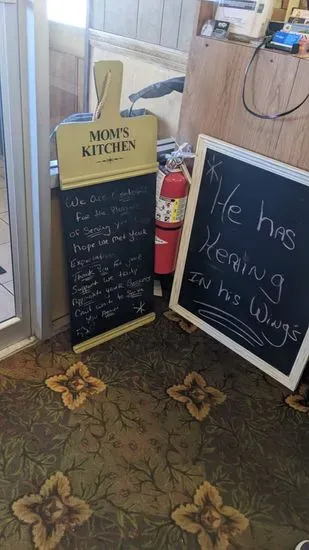 MOM'S
KITCHEN
We Are
for the
of Serving You
hope we met your
Expectations
Thank You for your
Support we truly
Appreciate your
Can't wait to
He has
Healing
IN his Wing's